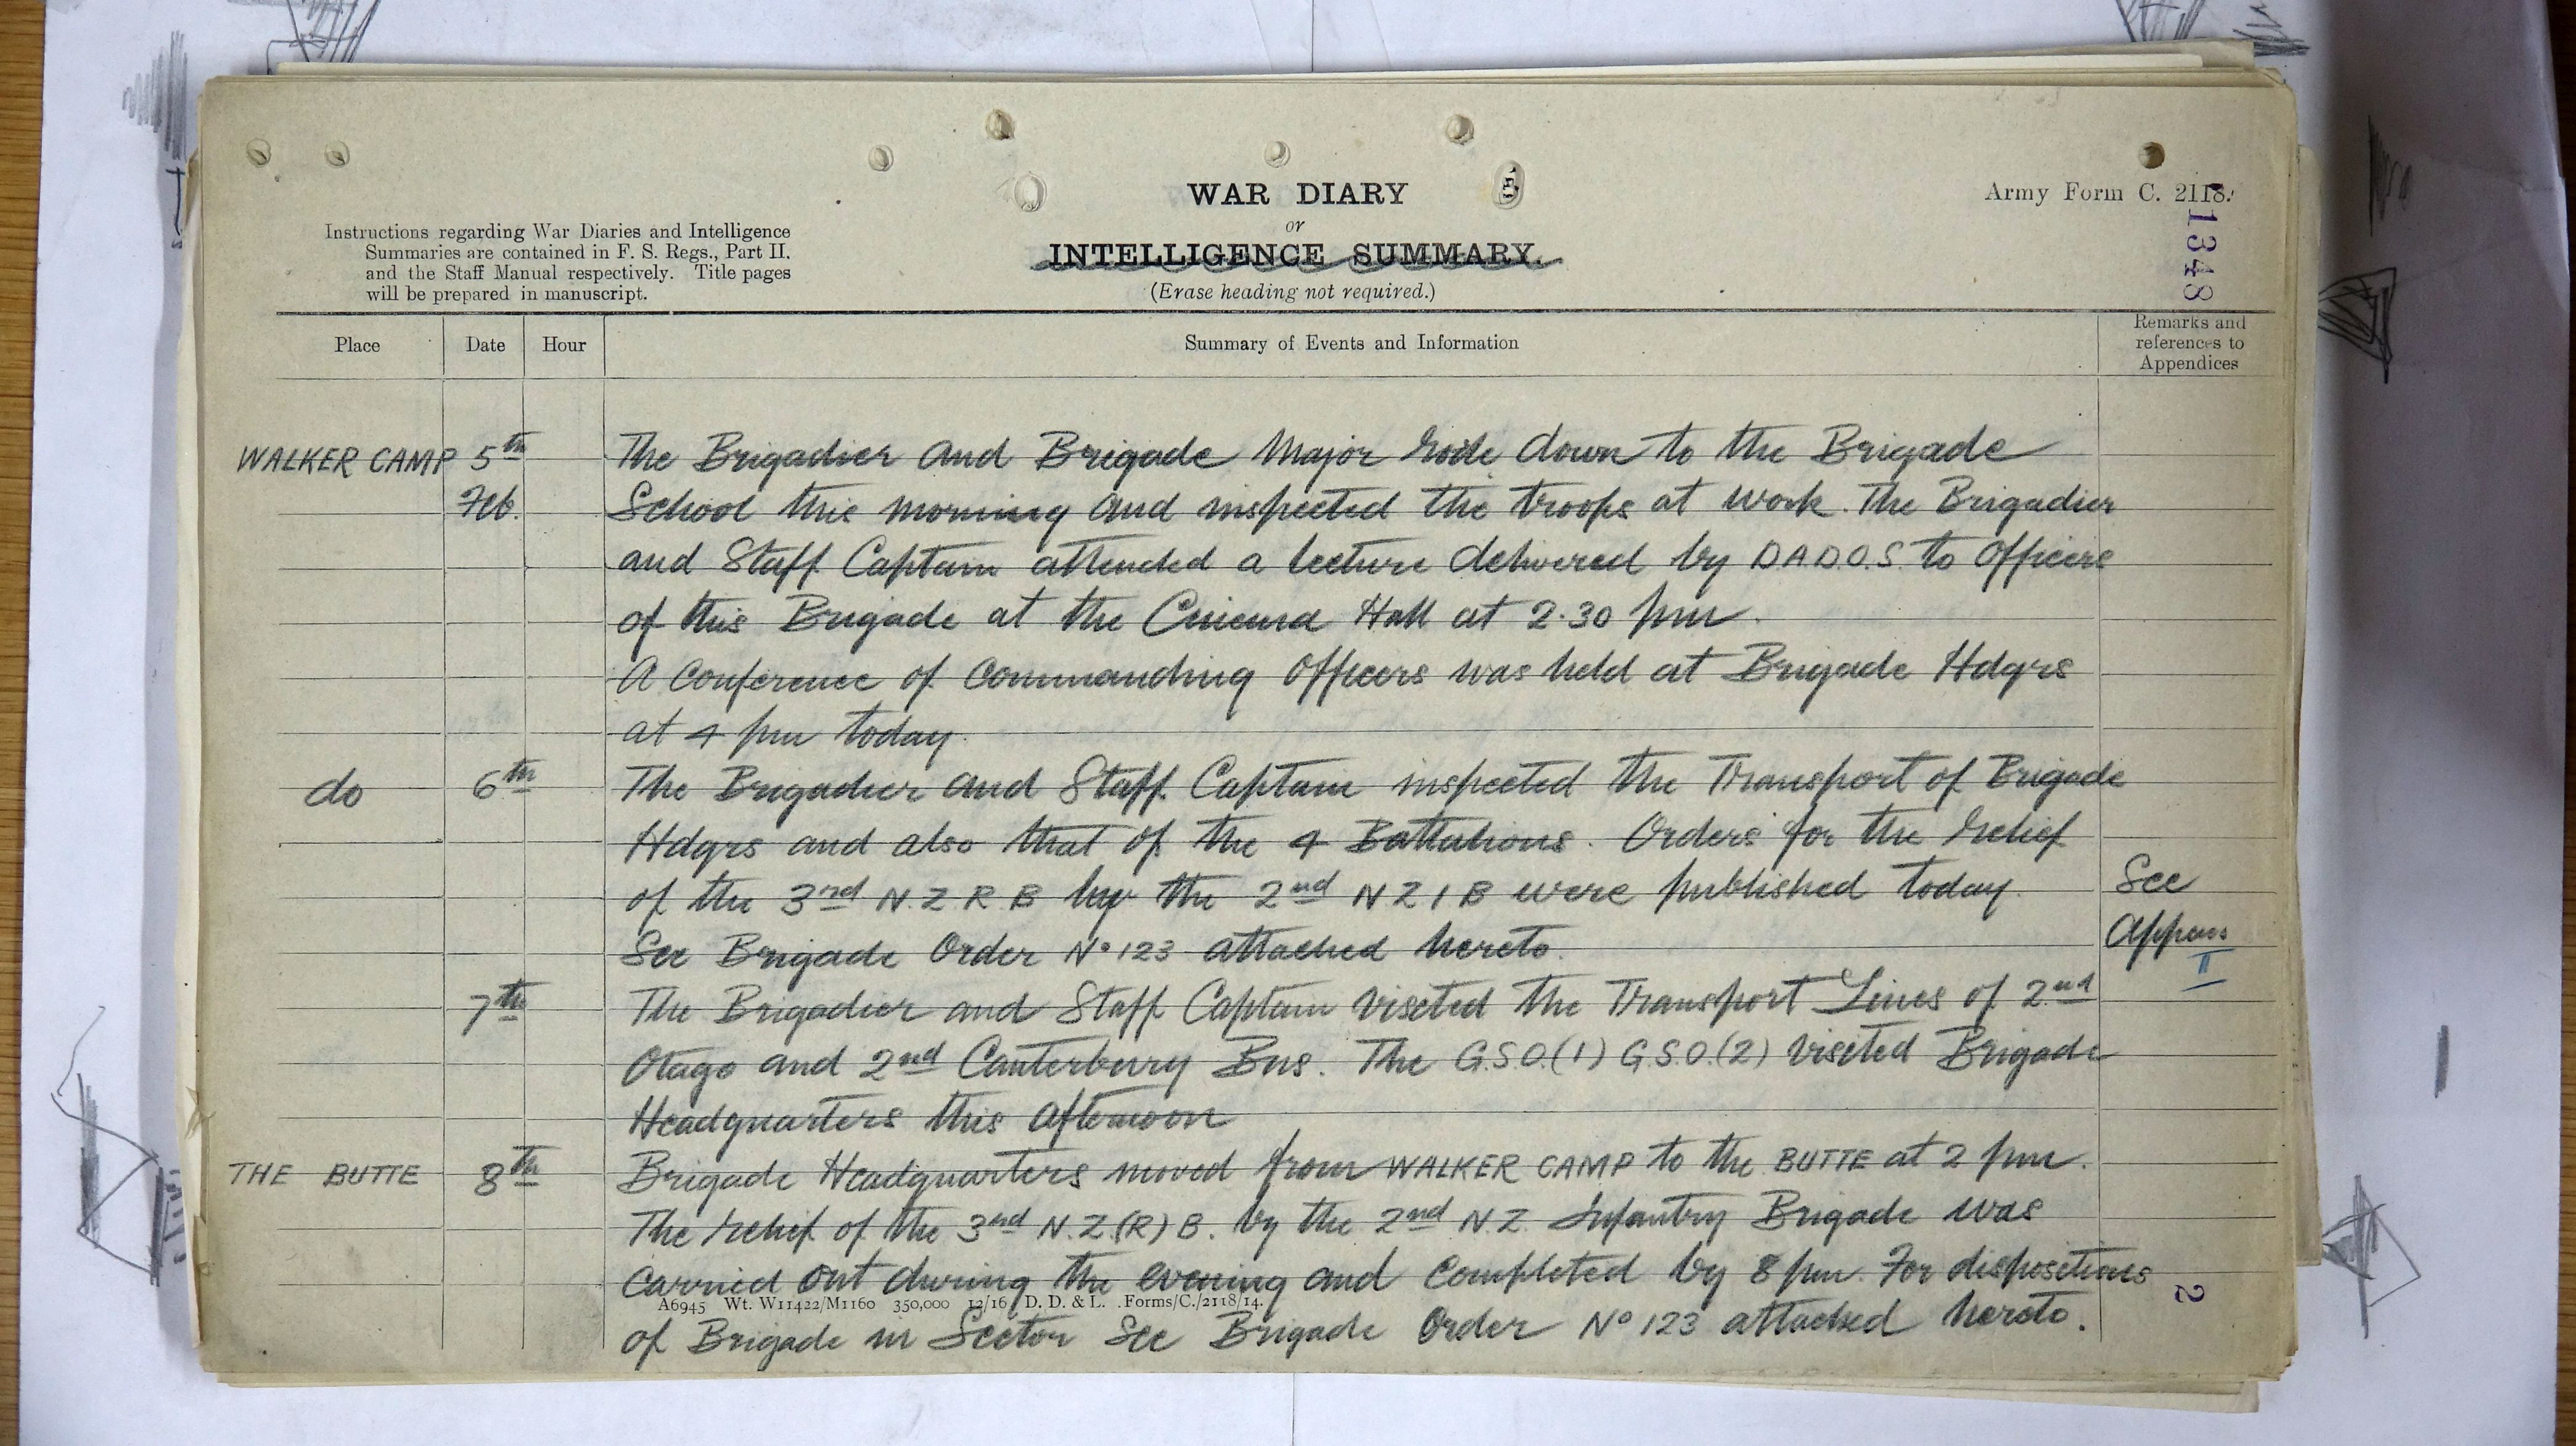 WAR DIARY
or
INTELLIGENCE SUMMARY.
(Erase heading not required.)
Army Form C. 2118.
1348
Instructions regarding War Diaries and Intelligence
Summaries are contained in F. S. Regs., Part II.
and the Staff Manual respectively. Title pages
will be prepared in manuscript.
Place Date Hour Summary of Events and Information Remarks and
references to
Appendices
WALKER CAMP 5th The Brigadier and Brigade Major rode down to the Brigade
Feb. School this morning and inspected the troops at work. The Brigadier
and Staff Captain attended a lecture delivered by D.A.D.O.S. to Officers
of this Brigade at the Cinema Hall at 2.30 pm.
A Conference of Commanding Officers was held at Brigade Hdqrs
at 4 pm today.
do 6th The Brigadier and Staff Captain inspected the Transport of Brigade
Hdqrs and also that of the 4 Battalions. Orders for the relief
of the 3rd N.Z.R.B by the 2nd N Z I B were published today. See
See Brigade Order No 123 attached hereto. Appen
II
7th The Brigadier and Staff Captain visited the Transport Lines of 2nd
Otago and 2nd Canterbury Bns. The G.S.O.(1) G.S.O.(2) visited Brigade
Headquarters this afternoon
THE BUTTE 8th Brigade Headquarters moved from WALKER CAMP to the BUTTE at 2 pm.
The relief of the 3rd N.Z.(R)B. by the 2nd N.Z. Infantry Brigade was
carried out during the evening and completed by 8 pm. For dispositions
A6945 Wt. W11422/M1160 350,000 12/16 D. D. & L. Forms/C./2118/14.
of Brigade in Sector See Brigade Order No 123 attached hereto.
2